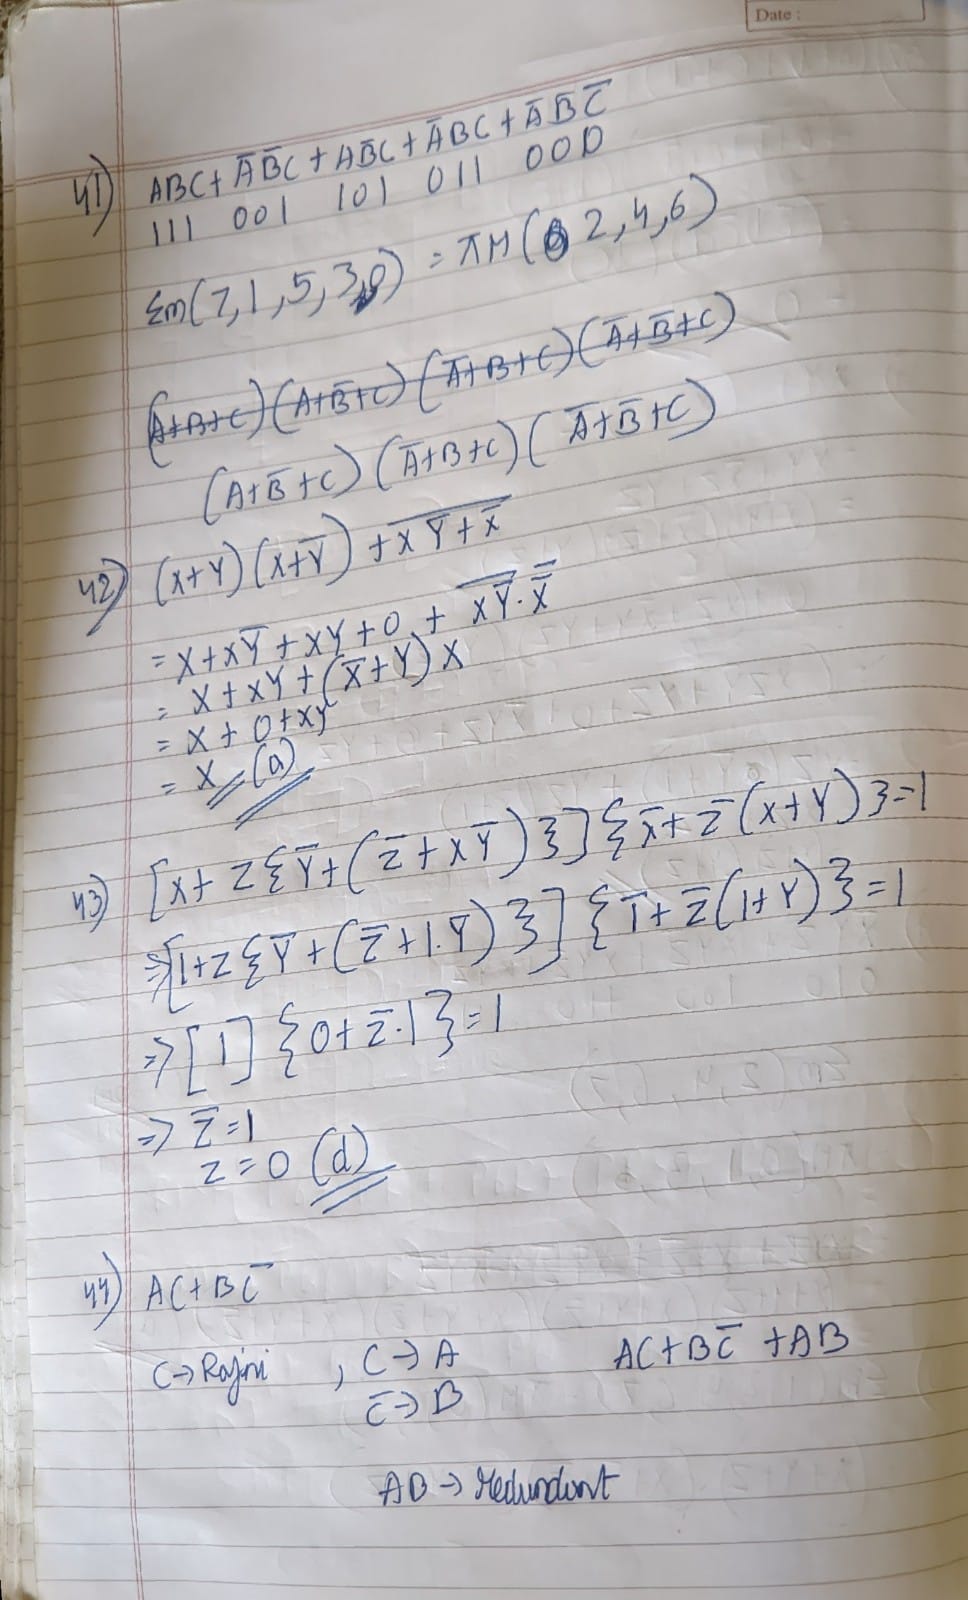 Date :
41) ABC + A̅B̅C + AB̅C + A̅BC + A̅B̅C̅
111 001 101 011 000
Σm(7,1,5,3,0) = πM(2,4,6)
(A+B+C)(A+B̅+C)(A̅+B+C)(A̅+B̅+C)
(A+B̅+C)(A̅+B+C)(A̅+B̅+C)
42) (X+Y)(X+Y̅) + \overline{XY̅+X̅}
= X+XY̅+XY+0 + \overline{XY̅}.X̿
= X+XY+(X̅+Y)X
= X+0+XY
= X (a)
43) [X+Z{Y̅+(Z̅+XY̅)}]{X̅+Z̅(X+Y)}=1
⇒[1+Z{Y̅+(Z̅+1.Y̅)}]{1̅+Z̅(1+Y)}=1
⇒[1]{0+Z̅.1}=1
⇒ Z̅=1
Z=0 (d)
44) AC+BC̅
C→Rajni , C→A AC+BC̅+AB
C̅→B
AB→redundant